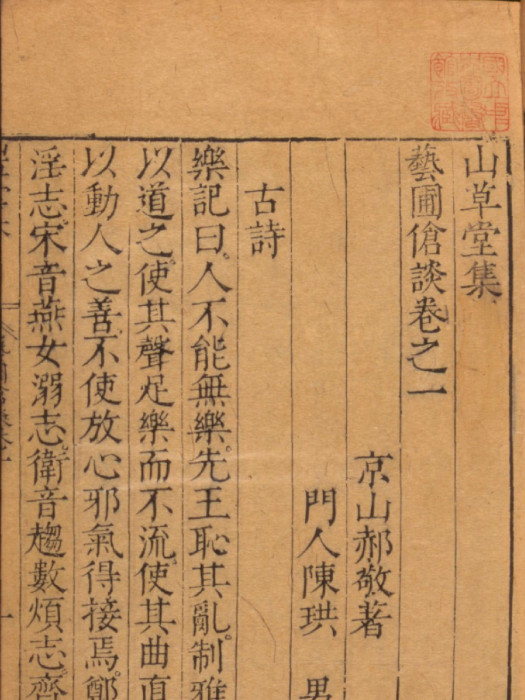 山草堂集
藝圃傖談卷之一
京山郝敬著
門人陳珙 男
古詩
樂記曰人不能無樂先王恥其亂制雅
以道之使其聲足樂而不流使其曲直
以動人之善不使放心邪氣得接焉鄭
淫志宋音燕女溺志衛音趨數煩志齊